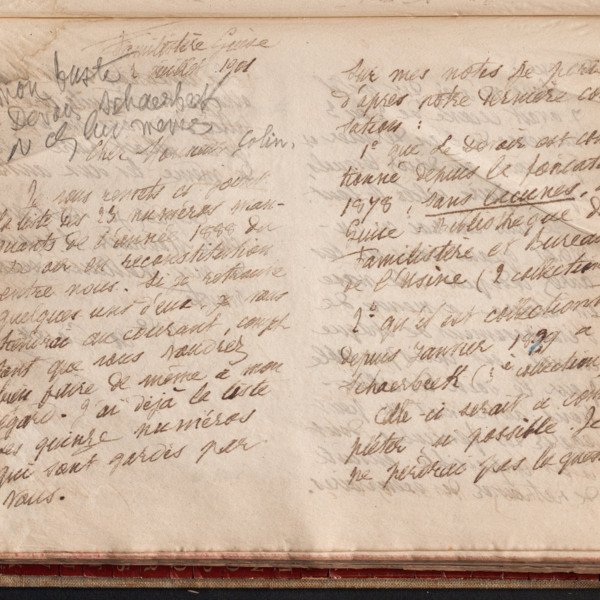 Familistère Guise
2 avril 1901
mon buste
Devoir Schaerbeek
Cher Monsieur Colin,
Je vous remets ci joint
la liste des 33 numéros man-
quants de l'année 1888 du
en reconstitution
entre nous. Si je retrouve
quelques uns d'eux je vous
tiendrai au courant, comp-
tant que vous voudrez
bien faire de même à mon
égard. J'ai déjà la liste
des quinze numéros
qui sont gardés par
vous.
Sur mes notes je porte
d'après notre dernière con
:
1° que le Devoir est col
tionné depuis la fondat
1878, sans lacunes,
Guise Bibliothèque d
Familistère et Bureau
de l'Usine (2 collection
2° qu'il est collectionn
depuis Janvier 1899 à
Schaerbeek (3e collection
Celle-ci serait à com
pléter si possible. Je
ne perdrai pas la ques